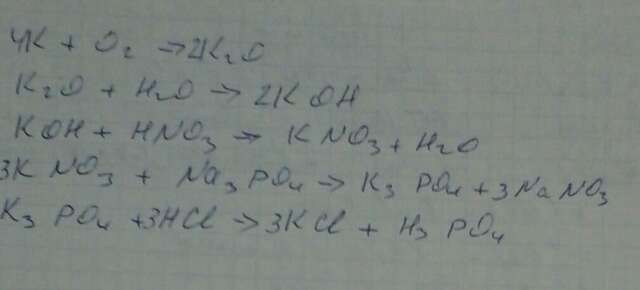 4K + O₂ → 2K₂O
K₂O + H₂O → 2KOH
KOH + HNO₃ → KNO₃ + H₂O
3KNO₃ + Na₃PO₄ → K₃PO₄ + 3NaNO₃
K₃PO₄ + 3HCl → 3KCl + H₃PO₄